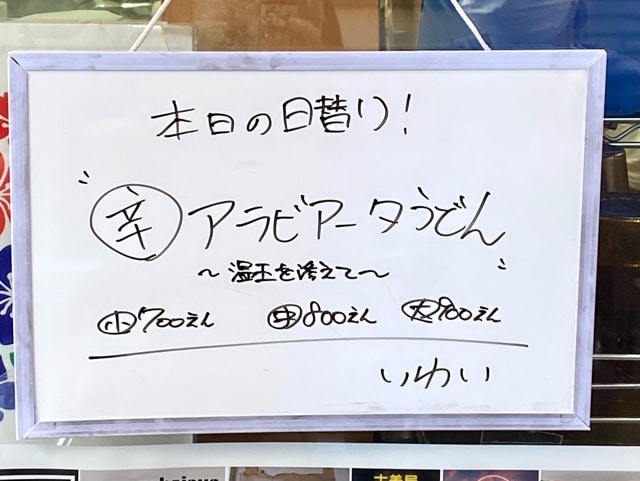 本日の日替り!
"辛 アラビアータうどん"
~温玉を添えて~
小700えん 中800えん 大900えん
いわい
古着屋